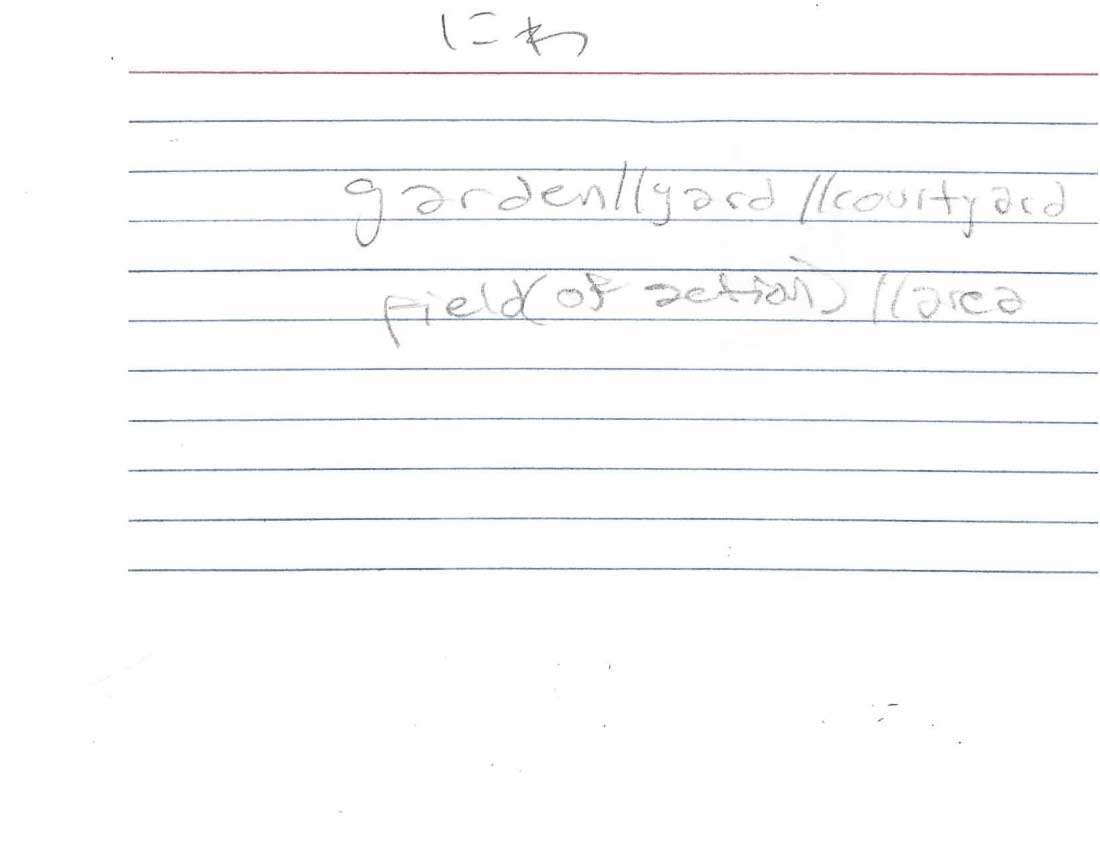 にわ
garden//yard//courtyard
field(of action)//area